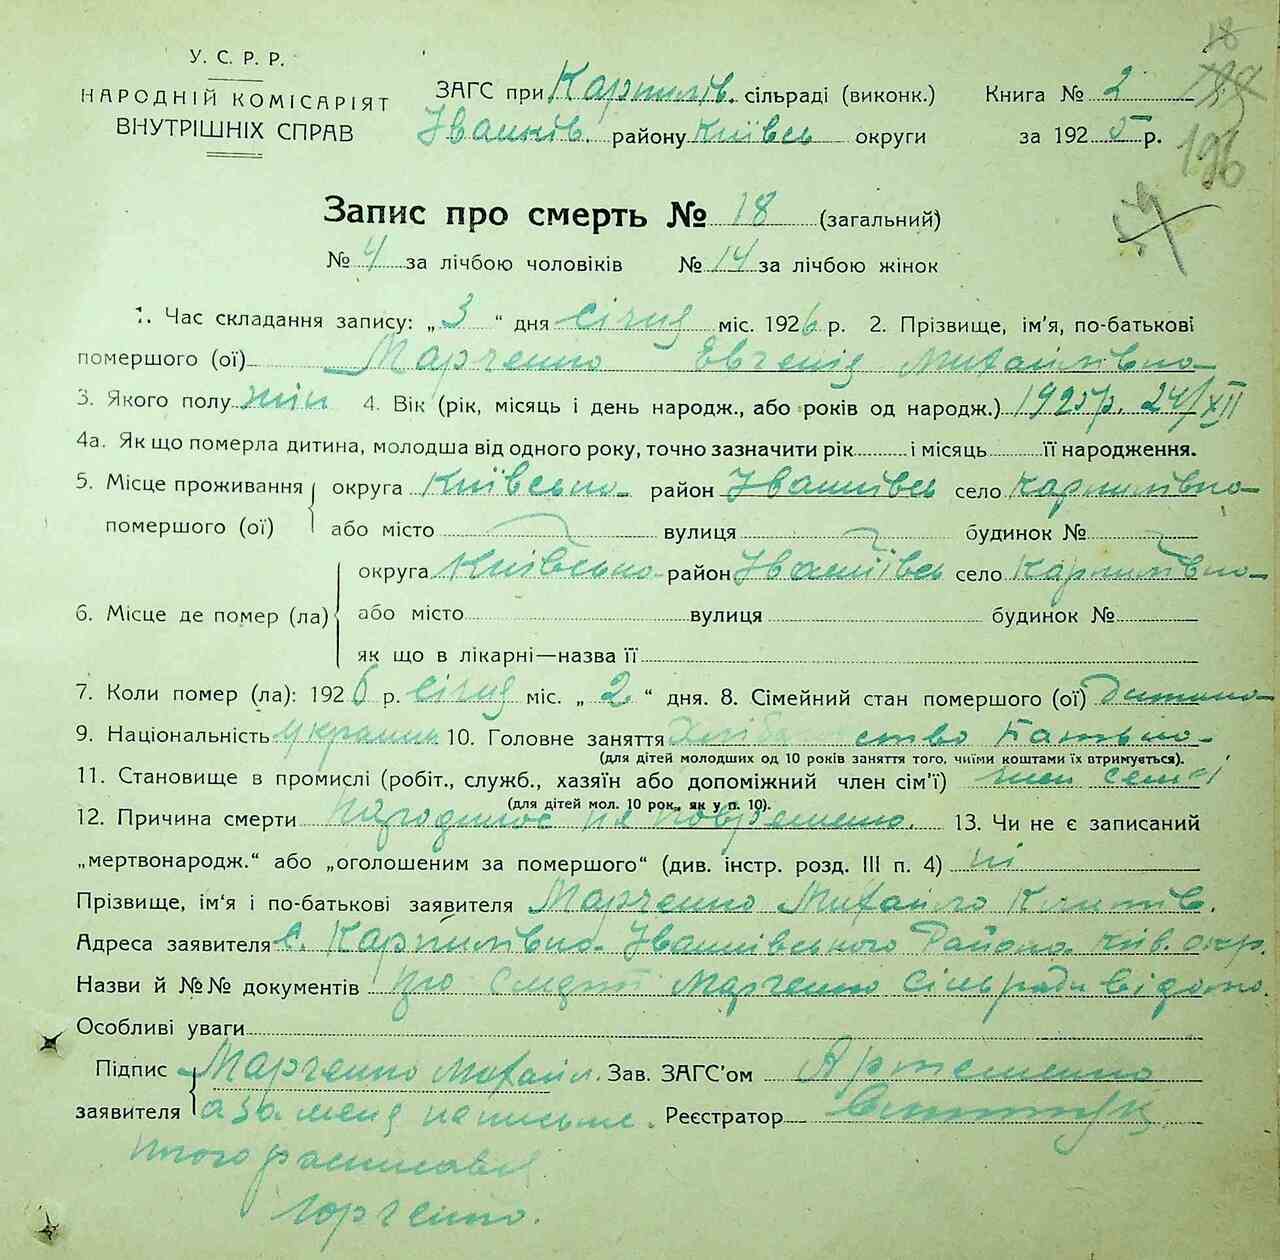 У. С. Р. Р.
НАРОДНІЙ КОМІСАРІЯТ
ВНУТРІШНІХ СПРАВ
ЗАГС при Карпилів. сільраді (виконк.) Книга № 2
Іванків. району Київсь округи за 1925 р.
18
196
Запис про смерть № 18 (загальний)
№ 4 за лічбою чоловіків № 14 за лічбою жінок
1. Час складання запису: „3“ дня січня міс. 1926 р. 2. Прізвище, ім’я, по-батькові
помершого (ої) Марченко Евгенія Михайлівна
3. Якого полу жін 4. Вік (рік, місяць і день народж., або років од народж.) 1925 р. 24/XII
4а. Як що померла дитина, молодша від одного року, точно зазначити рік і місяць її народження.
5. Місце проживання округа Київська район Іванківсь село Карпилівка
помершого (ої) або місто вулиця будинок №
округа Київська район Іванківсь село Карпилівка
6. Місце де помер (ла) або місто вулиця будинок №
як що в лікарні—назва її
7. Коли помер (ла): 1926 р. січня міс. „2“ дня. 8. Сімейний стан помершого (ої) дитина
9. Національність украинк 10. Головне заняття батька
(для дітей молодших од 10 років заняття того, чиїми коштами їх втримується).
11. Становище в промислі (робіт., служб., хазяїн або допоміжний член сім’ї) член семї
(для дітей мол. 10 рок., як у п. 10).
12. Причина смерти народилас не 13. Чи не є записаний
„мертвонародж.“ або „оголошеним за помершого“ (див. інстр. розд. III п. 4) ні
Прізвище, ім‘я і по-батькові заявителя Марченко Михайло
Адреса заявителя с. Карпилівка Іванківського Района Київ. окр.
Назви й №№ документів про смерть Марченко сільради відомо.
Особливі уваги
Підпис Марченко Михайл. Зав. ЗАГС’ом Артеменко
заявителя а за меня Реєстратор
росписався
Горченко.